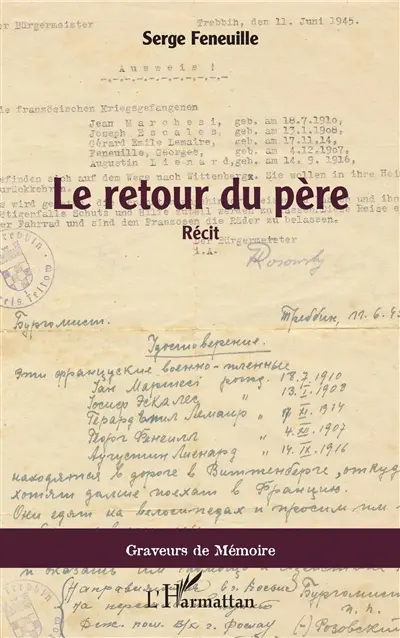 er Bürgermeister
Trebbin, den 11. Juni 1945.
Serge Feneuille
Ausweis !
ie französischen Kriegsgefangenen
Jean Marchesi, geb. am 18.7.1910,
Joseph Escales, geb. am 13.1.1908,
Gérard Emile Lemaire, geb. am 17.11.14,
Feneuille, Georges, geb. am 4.12.1907,
Augustin Lienard, geb. am 14. 9.1916,
efinden sich auf dem Wege nach Wittenberge. Sie wollen in ihre Hei
zurückkehren
Le retour du père
er Fahrrad und sind den Franzosen die Räder zu belassen.
Récit
Der Bürgermeister
i.A.
Rosowsky
Бургомист.
Треббин, 11.6.45
Удостоверение.
Эти французские военно-пленные
Жан Маршесі рожд. 18.7.1910
Іосиф Эскалес " 13.I.1908
Герард Емил Лемаир " 17.XI.1914
Георг Фенеилл " 4.XII.1907
Аугустин Лиенард " 14.IX.1916
находятся в дороге в Виттенберге, откуда
хотят дальше поехать в Францию.
Они едят на велосипедах и просим им
Graveurs de Mémoire
L'Harmattan